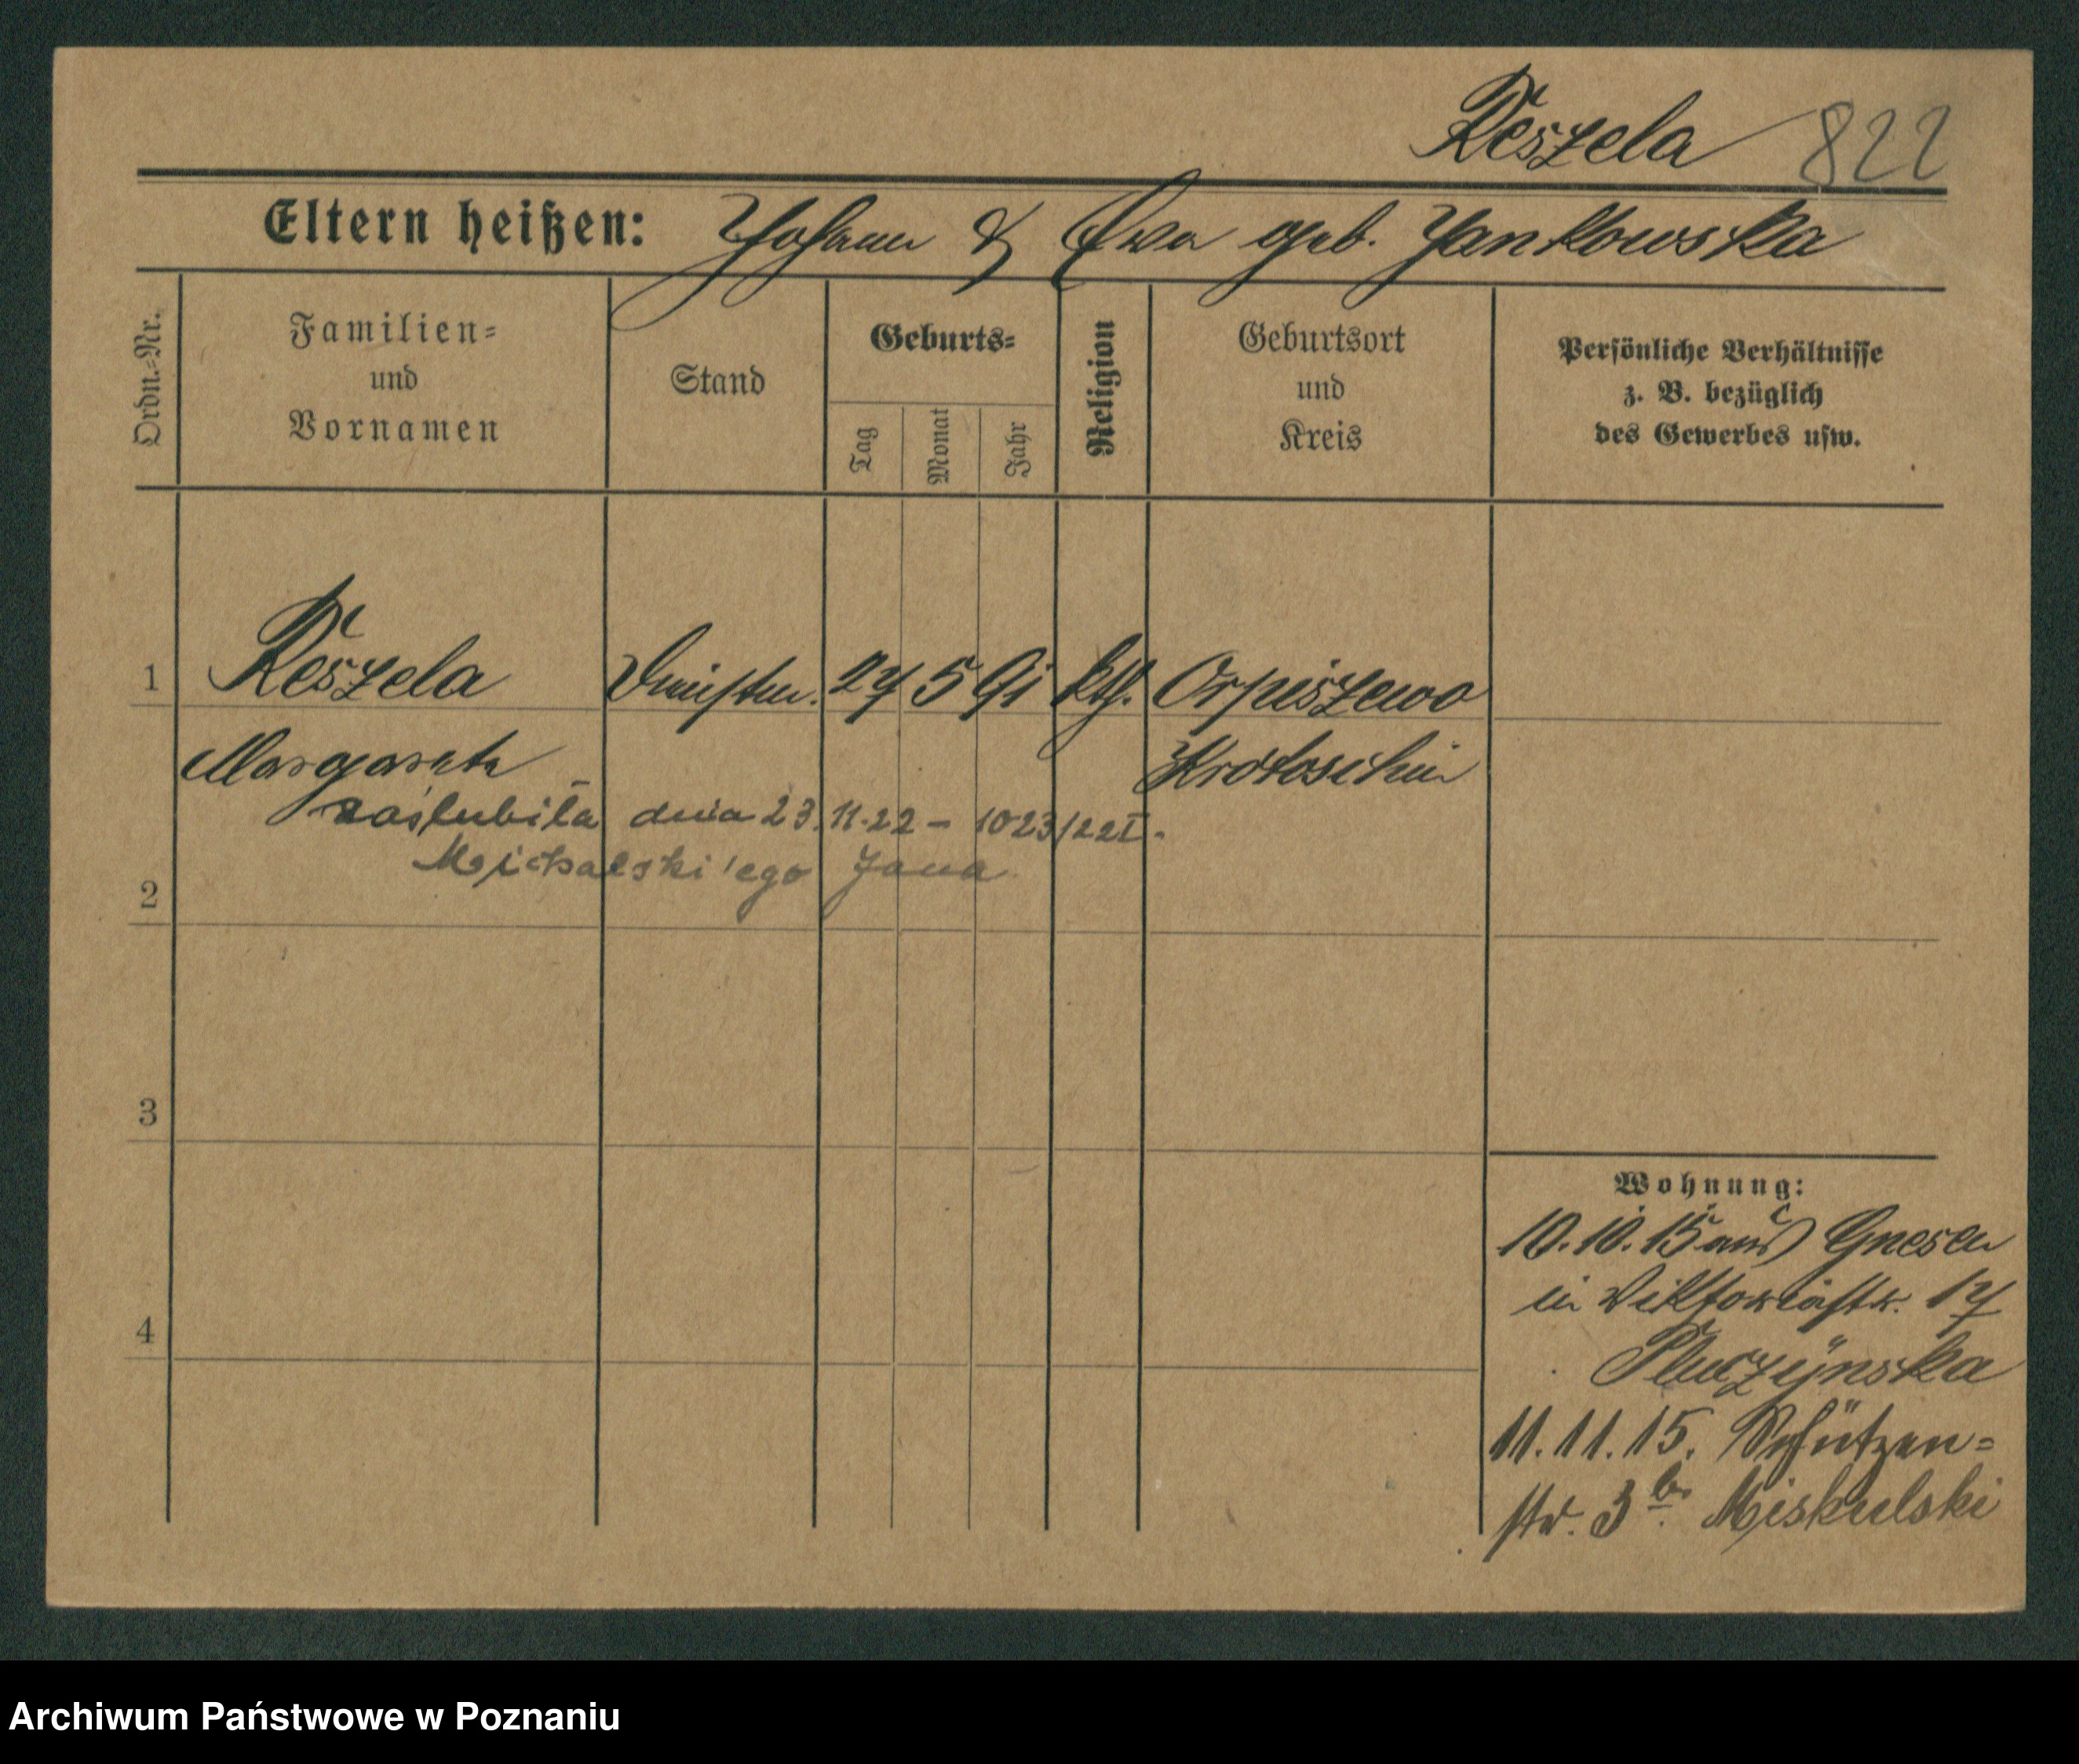 Reszela 822
Eltern heißen: Johann & Ewa geb. Jankowska
Ordn.-Nr.
Familien-
und
Vornamen
Stand
Geburts-
Tag
Monat
Jahr
Religion
Geburtsort
und
Kreis
Persönliche Verhältnisse
z. B. bezüglich
des Gewerbes usw.
1 Reszela 27 5 91 kth. Orpiszewo
Margareta Krotoschin
zaślubiła dnia 23.11.22 – 1023/22I.
Michalski'ego Jana
2
3
4
Wohnung:
10.10.15 aus Gnesen
in Viktoriastr. 17
Pluczynska
11.11.15. Schützen=
str. 3 Miskulski
Archiwum Państwowe w Poznaniu